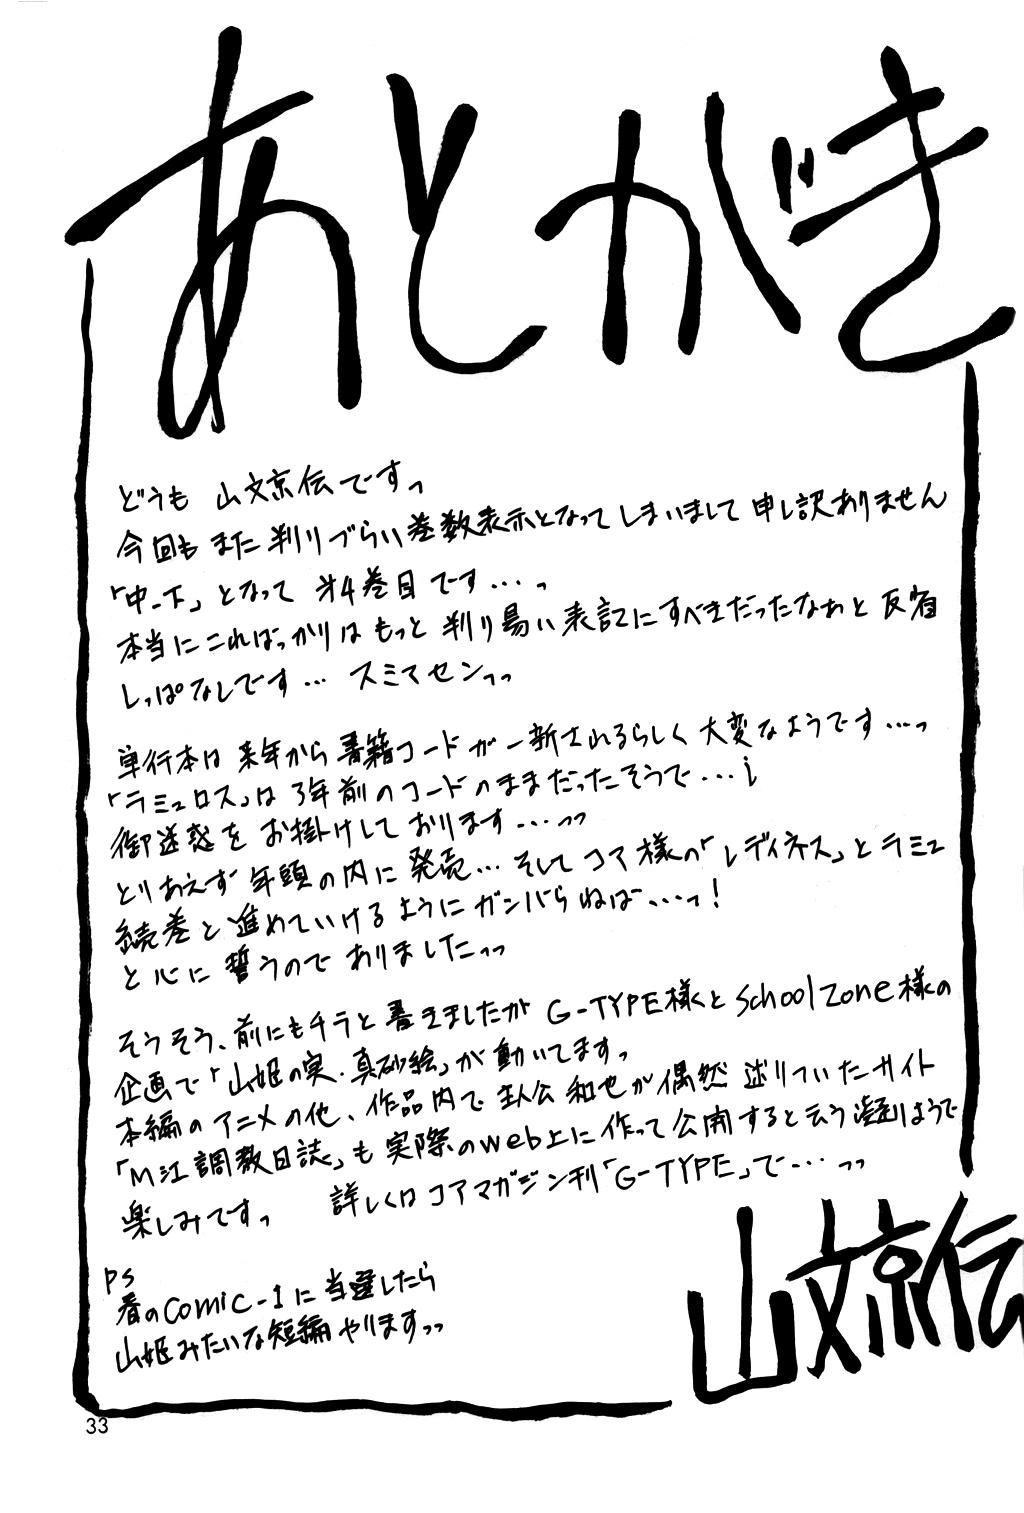 あとがき
どうも 山文京伝ですっ
今回も また 判りづらい巻数表示となってしまいまして 申し訳ありません
「中-下」となって 第4巻目です…っ
本当にこればっかりは もっと 判り易い表記にすべきだったなぁと 反省
しっぱなしです… スミマセンっっ
単行本は 来年から書籍コードが一新されるらしく 大変なようです…っ
「ラミュロス」は3年前のコードのままだったそうで…
御迷惑を お掛けしております…っっ
とりあえず 年頭の内に発売… そして コア様の「レディネス」とラミュ
続巻と 進めていけるように ガンバらねば…っ!
と心に 誓うのでありましたっっ
そうそう、前にもチラと書きましたが G-TYPE様と schoolzone様の
企画で「山姫の実・真砂絵」が動いてますっ
本編のアニメの他、作品内で主人公 和也が偶然 辿りついたサイト
「M江調教日誌」も実際のweb上に作って公開すると云う凝りようで
楽しみですっ 詳しくは コアマガジン刊「G-TYPE」で…っっ
PS
春のcomic-1に当選したら
山姫みたいな短編やりますっっ
山文京伝
33